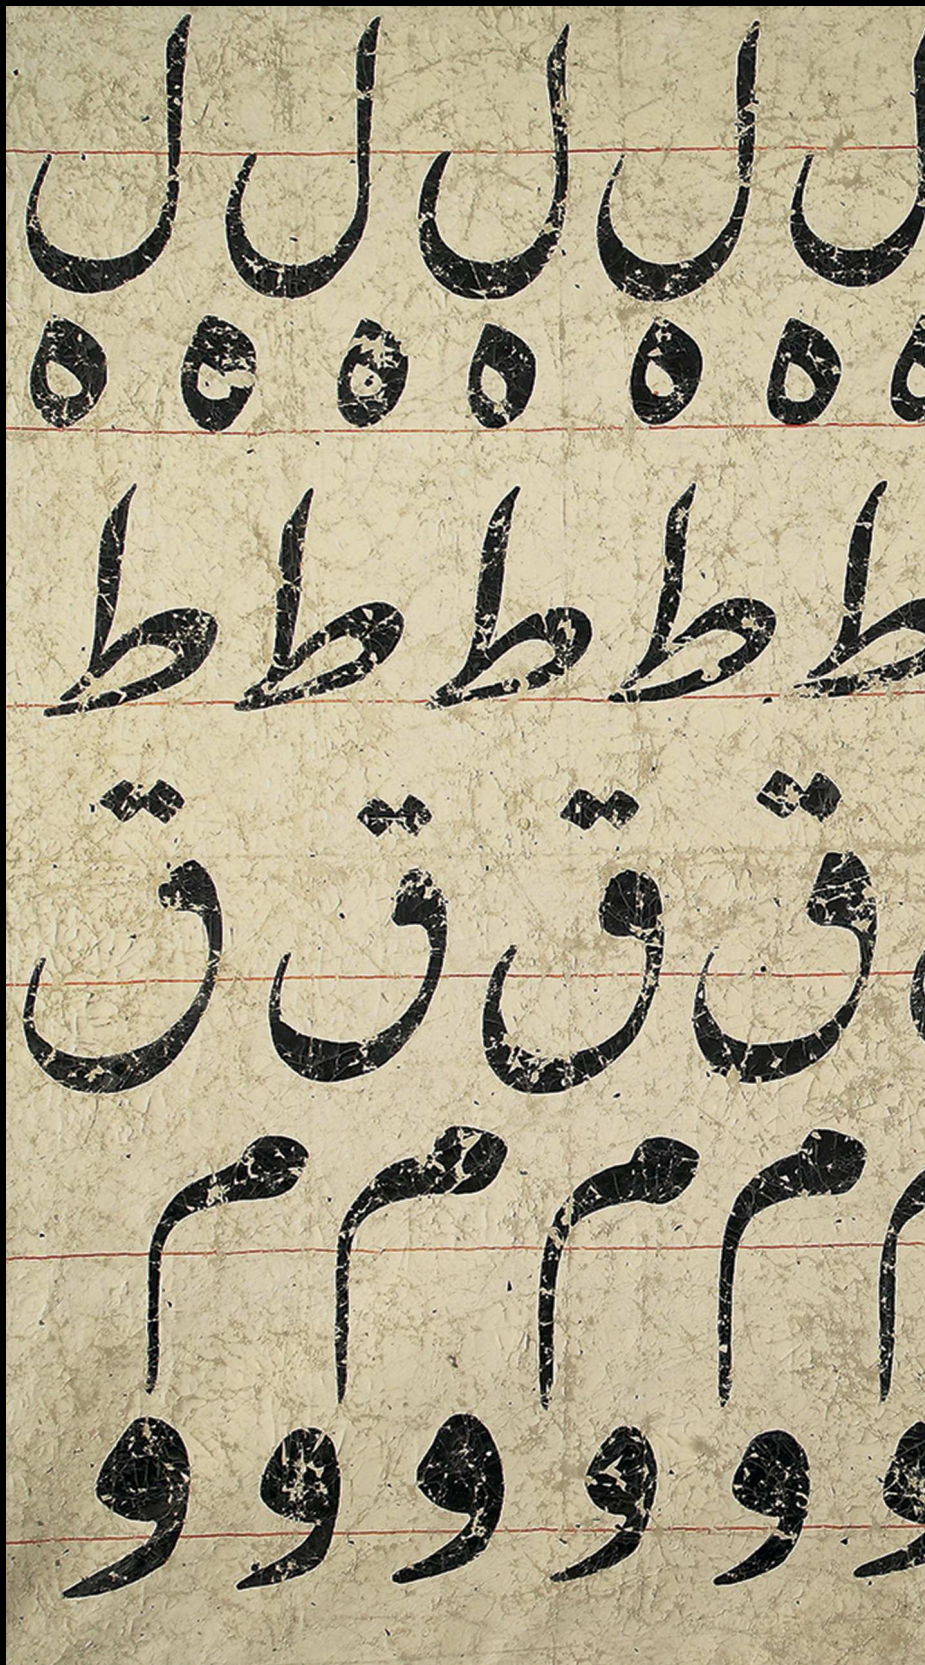 ل ل ل ل ل
ه ه ه ه ه ه ه
ط ط ط ط ط
ق ق ق ق
م م م م م
و و و و و و